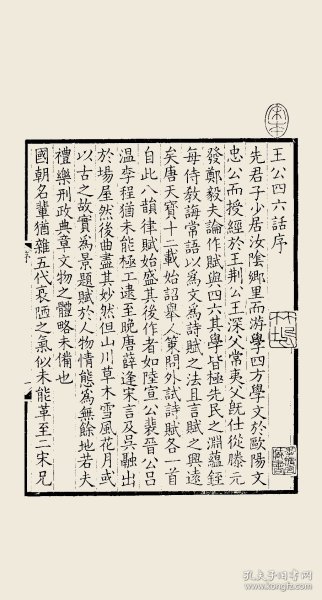 王公四六話序
先君子少居汝陰鄉里而游學四方學文於歐陽文
忠公而授經於王荊公王深父常夷父既仕從滕元
發鄭毅夫論作賦與四六其學皆極先民之淵蘊銍
每侍敎誨常語以爲文爲詩賦之法且言賦之興遠
矣唐天寶十二載始詔舉人策問外試詩賦各一首
自此八韻律賦始盛其後作者如陸宣公裴晉公呂
温李程猶未能極工逮至晚唐薛逢宋言及吳融出
於場屋然後曲盡其妙然但山川草木雪風花月或
以古之故實爲景題賦於人物情態爲無餘地若夫
禮樂刑政典章文物之體略未備也
國朝名輩猶雜五代衰陋之氣似未能革至二宋兄
孔夫子旧书网